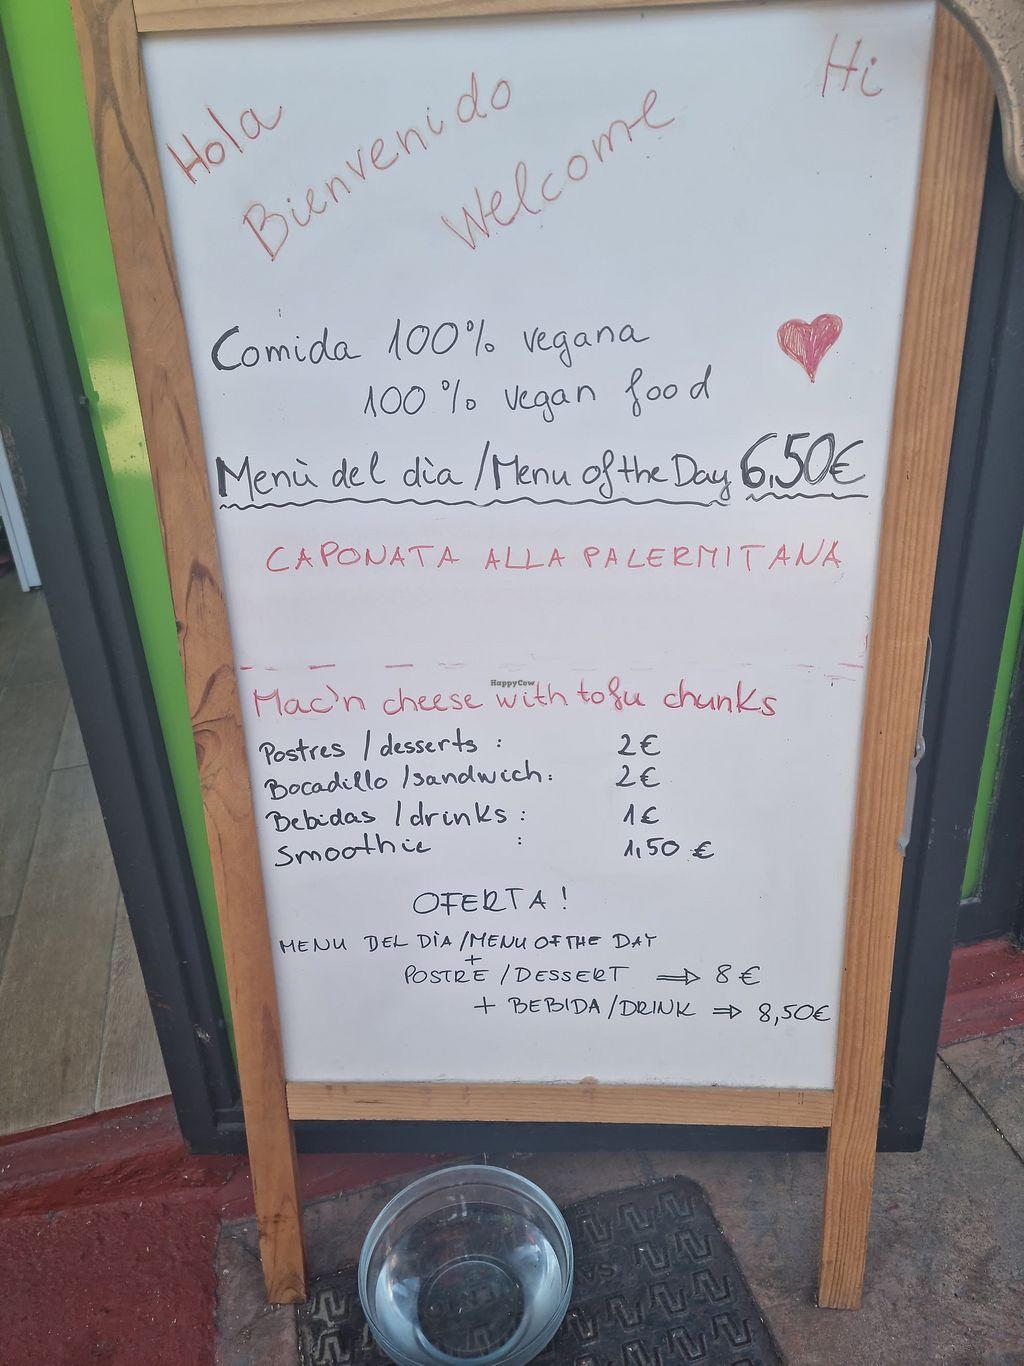 Hola
Bienvenido
Welcome
Hi
Comida 100% vegana
100% vegan food
Menù del dìa / Menu of the Day 6,50€
CAPONATA ALLA PALERMITANA
HappyCow
Mac'n cheese with tofu chunks
Postres / desserts : 2€
Bocadillo / sandwich : 2€
Bebidas / drinks : 1€
Smoothie : 1,50 €
OFERTA !
MENU DEL DÌA / MENU OF THE DAY
+
POSTRE / DESSERT ⇒ 8 €
+ BEBIDA / DRINK ⇒ 8,50€